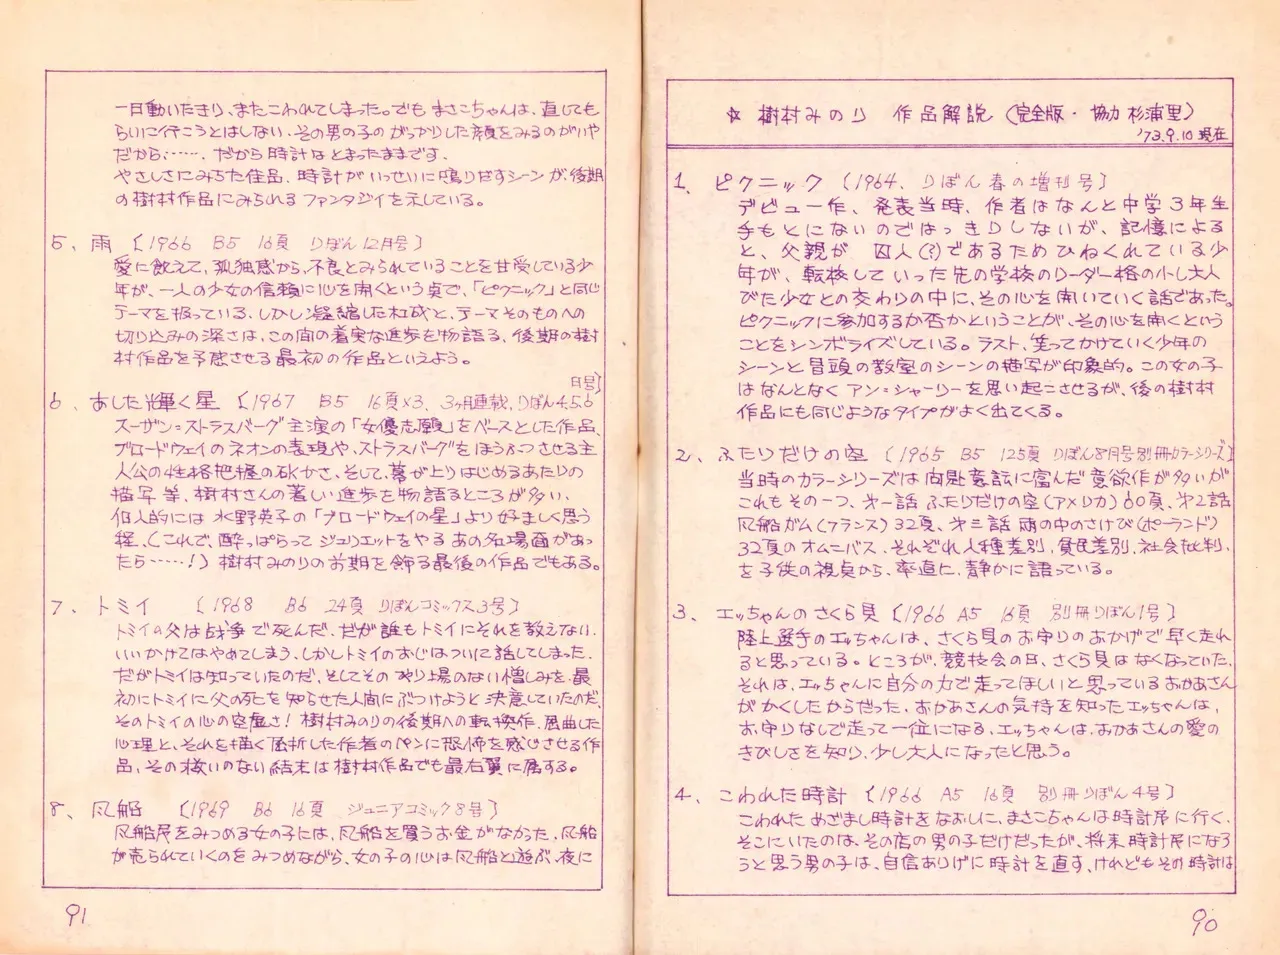 ☆ 樹村みのり 作品解説 (完全版・協力 杉浦里)
'73.9.10 現在
1、ピクニック 〔1964、りぼん春の増刊号〕
デビュー作、発表当時、作者はなんと中学3年生
手もとにないのではっきりしないが、記憶による
と、父親が 囚人(?)であるためひねくれている少
年が、転校していった先の学校のリーダー格の少し大人
びた少女との交わりの中に、その心を開いていく話であった。
ピクニックに参加するか否かということが、その心を開くという
ことをシンボライズしている。ラスト、笑ってかけていく少年の
シーンと冒頭の教室のシーンの描写が印象的。この女の子
はなんとなく アン=シャーリーを思い起こさせるが、後の樹村
作品にも同じようなタイプがよく出てくる。
2、ふたりだけの空 〔1965 B5 125頁 りぼん8月号別冊カラーシリーズ〕
当時のカラーシリーズは内容意訳に富んだ意欲作が多いが
これもその一つ、第一話 ふたりだけの空(アメリカ) 60頁、第2話
風船ガム(フランス) 32頁、第三話 雨の中のさけび(ポーランド)
32頁のオムニバス、それぞれ人種差別、貧民差別、社会批判、
を子供の視点から、率直に、静かに語っている。
3、エッちゃんのさくら貝 〔1966 A5 16頁 別冊りぼん1号〕
陸上選手のエッちゃんは、さくら貝のお守りのおかげで早く走れ
ると思っている。ところが、競技会の日、さくら貝はなくなっていた。
それは、エッちゃんに自分の力で走ってほしいと思っているおかあさん
がかくしたからだった、おかあさんの気持を知ったエッちゃんは、
お守りなしで走って一位になる、エッちゃんは、おかあさんの愛の
きびしさを知り、少し大人になったと思う。
4、こわれた時計 〔1966 A5 16頁 別冊りぼん4号〕
こわれためざまし時計をなおしに、まさこちゃんは時計屋に行く、
そこにいたのは、その店の男の子だけだったが、将来時計屋になろ
うと思う男の子は、自信ありげに時計を直す、けれどもその時計は
90
一日動いたきり、またこわれてしまった。でも まさこちゃんは、直しても
らいに行こうとはしない、その男の子の がっかりした顔をみるのがいや
だから……、だから時計はとまったままです、
やさしさにみちた佳品、時計がいっせいに鳴りだすシーンが、後期
の樹村作品にみられる ファンタジイを示している。
5、雨 〔1966 B5 16頁 りぼん12月号〕
愛に飢えて、孤独感から、不良とみられていることを甘受している少
年が、一人の少女の信頼に心を開くという点で、「ピクニック」と同じ
テーマを扱っている、しかし凝縮した構成と、テーマそのものへの
切り込みの深さは、この間の着実な進歩を物語る、後期の樹
村作品を予感させる最初の作品といえよう。
6、あした輝く星 〔1967 B5 16頁×3、3ヶ月連載、りぼん4.5.6
月号〕
スーザン=ストラスバーグ主演の「女優志願」をベースとした作品、
ブロードウェイのネオンの表現や、ストラスバーグをほうふつさせる主
人公の性格把握の確かさ、そして、幕が上りはじめるあたりの
描写等、樹村さんの著しい進歩を物語るところが多い、
個人的には 水野英子の「ブロードウェイの星」より好ましく思う
程、(これで、酔っぱらって ジュリエットをやる あの名場面があっ
たら……!) 樹村みのりの前期を飾る最後の作品でもある。
7、トミイ 〔1968 B6 24頁 りぼんコミックス3号〕
トミイの父は戦争で死んだ、だが誰もトミイにそれを教えない、
いいかけてはやめてしまう、しかしトミイのおじはついに話してしまった、
だがトミイは知っていたのだ、そしてそのやり場のない憎しみを、最
初にトミイに父の死を知らせた人間にぶつけようと決意していたのだ、
そのトミイの心の空虚さ! 樹村みのりの後期への転換作、屈曲した
心理と、それを描く屈折した作者のペンに恐怖を感じさせる作
品、その救いのない結末は樹村作品でも最右翼に属する。
8、風船 〔1969 B6 16頁 ジュニアコミック8号〕
風船屋をみつめる女の子には、風船を買うお金がなかった、風船
が売られていくのをみつめながら、女の子の心は風船と遊ぶ、夜に
91